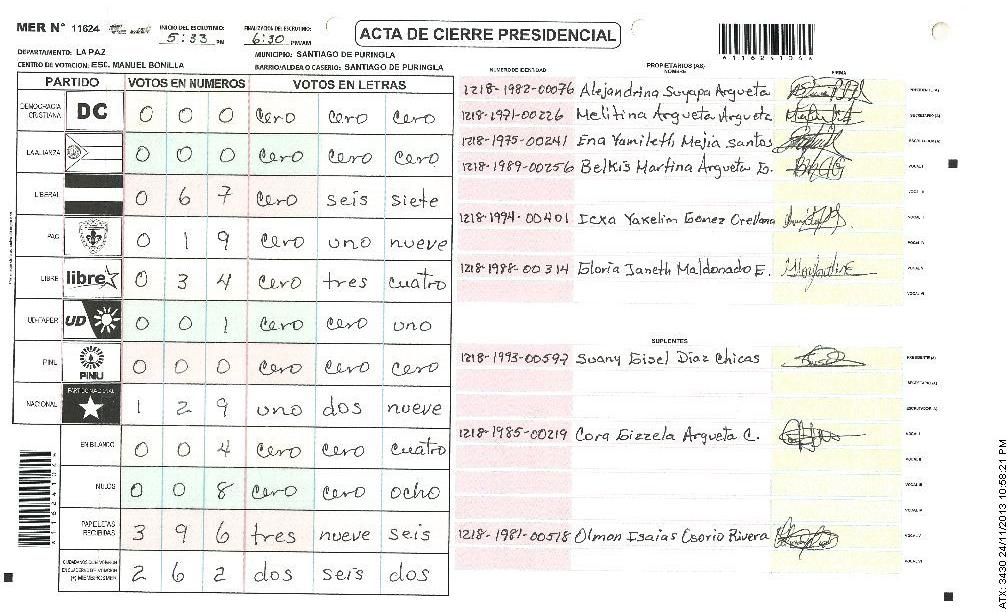 MER N° 11624
INICIO DEL ESCRUTINIO: 5:33 PM
FINALIZACION DEL ESCRUTINIO: 6:30 PM/AM
ACTA DE CIERRE PRESIDENCIAL
41162410 6
DEPARTAMENTO: LA PAZ
MUNICIPIO: SANTIAGO DE PURINGLA
CENTRO DE VOTACION: ESC. MANUEL BONILLA
BARRIO/ALDEA O CASERIO: SANTIAGO DE PURINGLA
PARTIDO VOTOS EN NUMEROS VOTOS EN LETRAS
DEMOCRACIA CRISTIANA DC 0 0 0 cero cero cero
LA ALIANZA 0 0 0 cero cero cero
LIBERAL 0 6 7 cero seis siete
PAC 0 1 9 cero uno nueve
LIBRE libre 0 3 4 cero tres cuatro
UD-FAPER UD 0 0 1 cero cero uno
PINU PINU 0 0 0 cero cero cero
NACIONAL PARTIDO NACIONAL 1 2 9 uno dos nueve
EN BLANCO 0 0 4 cero cero cuatro
NULOS 0 0 8 cero cero ocho
PAPELETAS RECIBIDAS 3 9 6 tres nueve seis
CIUDADANOS QUE VOTARON 2 6 2 dos seis dos
(+) MIEMBROS MER
NUMERO DE IDENTIDAD PROPIETARIOS (AS) NOMBRE FIRMA
1218-1982-00076 Alejandrina Suyapa Argueta PRESIDENTE (A)
1218-1971-00226 Melitina Argueta Argueta SECRETARIO (A)
1218-1975-00241 Ena Yamileth Mejia santos ESCRUTADOR (A)
1218-1989-00256 Belkis Martina Argueta VOCAL I
VOCAL II
1218-1994-00401 Icxa Yakelim Gomez Orellana VOCAL III
VOCAL IV
1218-1988-00314 Gloria Janeth Maldonado E. VOCAL V
VOCAL VI
SUPLENTES
1218-1993-00597 Suany Gisel Diaz Chicas PRESIDENTE (A)
SECRETARIO (A)
ESCRUTADOR (A)
1218-1985-00219 Cora Gizzela Argueta C. VOCAL I
VOCAL II
VOCAL III
VOCAL IV
1218-1981-00518 Olman Isaias Osorio Rivera VOCAL V
VOCAL VI
ATX: 3430 24/11/2013 10:58:21 PM